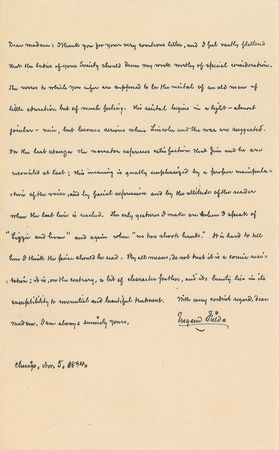 Dear madam: I thank you for your very courteous letter, and I feel vastly flattered
that the ladies of your Society should deem my work worthy of special consideration.
The verses to which you refer are supposed to be the recital of an old man of
little education but of much feeling. His recital begins in a light - almost
jocular - vein, but becomes serious when Lincoln and the war are suggested.
In the last stanza the narrator expresses satisfaction that Jim and he are
reconciled at last; this meaning is greatly emphasized by a proper manipula-
tion of the voice, and by facial expression and by the attitude of the reader
when the last line is reached. The only gestures I make are when I speak of
"Lizzie and home" and again when "us two shook hands." It is hard to tell
how I think the piece should be read. By all means, do not treat it as a comic reci-
tation; it is, on the contrary, a bit of character pathos, and its beauty lies in its
susceptibility to reverential and beautiful treatment. With very cordial regard, dear
madam, I am always sincerely yours,
Eugene Field.
Chicago, Nov. 5, 1894.